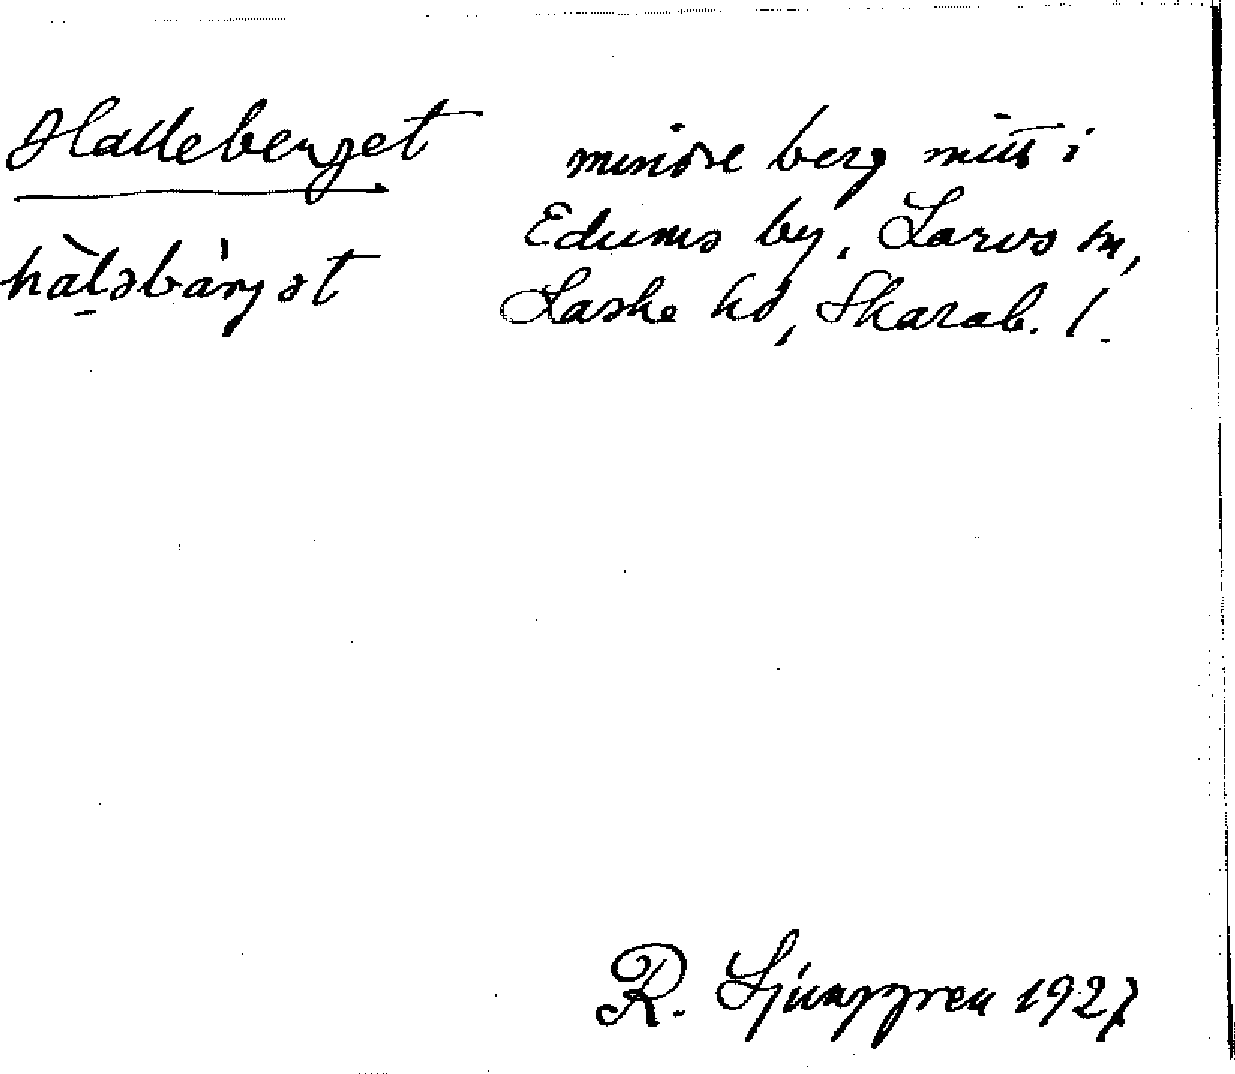 Halleberget
hàl̠əbárjət
mindre berg mitt i
Edums by, Larvs sn,
Laske hd, Skarab. l.
R. Ljunggren 1927